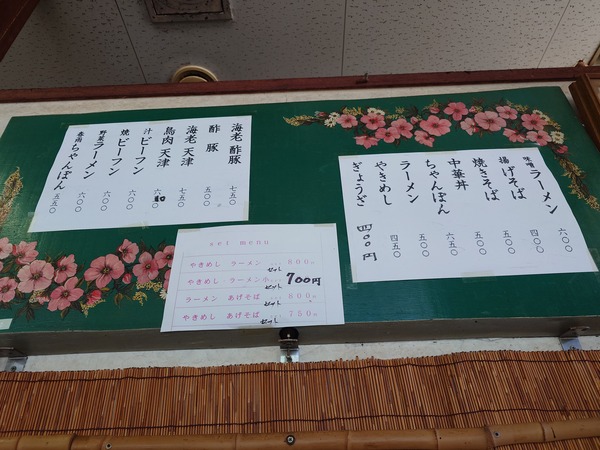 海老酢豚 七五〇
酢豚 五〇〇
海老天津 五五〇
鳥肉天津
汁ビーフン 六〇〇
焼ビーフン 六〇〇
野菜ラーメン 六〇〇
春雨ちゃんぽん 五五〇
set menu
やきめし ラーメン セット 800円
やきめし ラーメン小 セット 700円
ラーメン あげそば セット 800円
やきめし あげそば セット 750
味噌ラーメン 六〇〇
揚げそば 四〇〇
焼きそば 五五〇
中華丼 五五〇
ちゃんぽん 六五〇
ラーメン 五五〇
やきめし 四五〇
ぎょうざ 四〇〇円